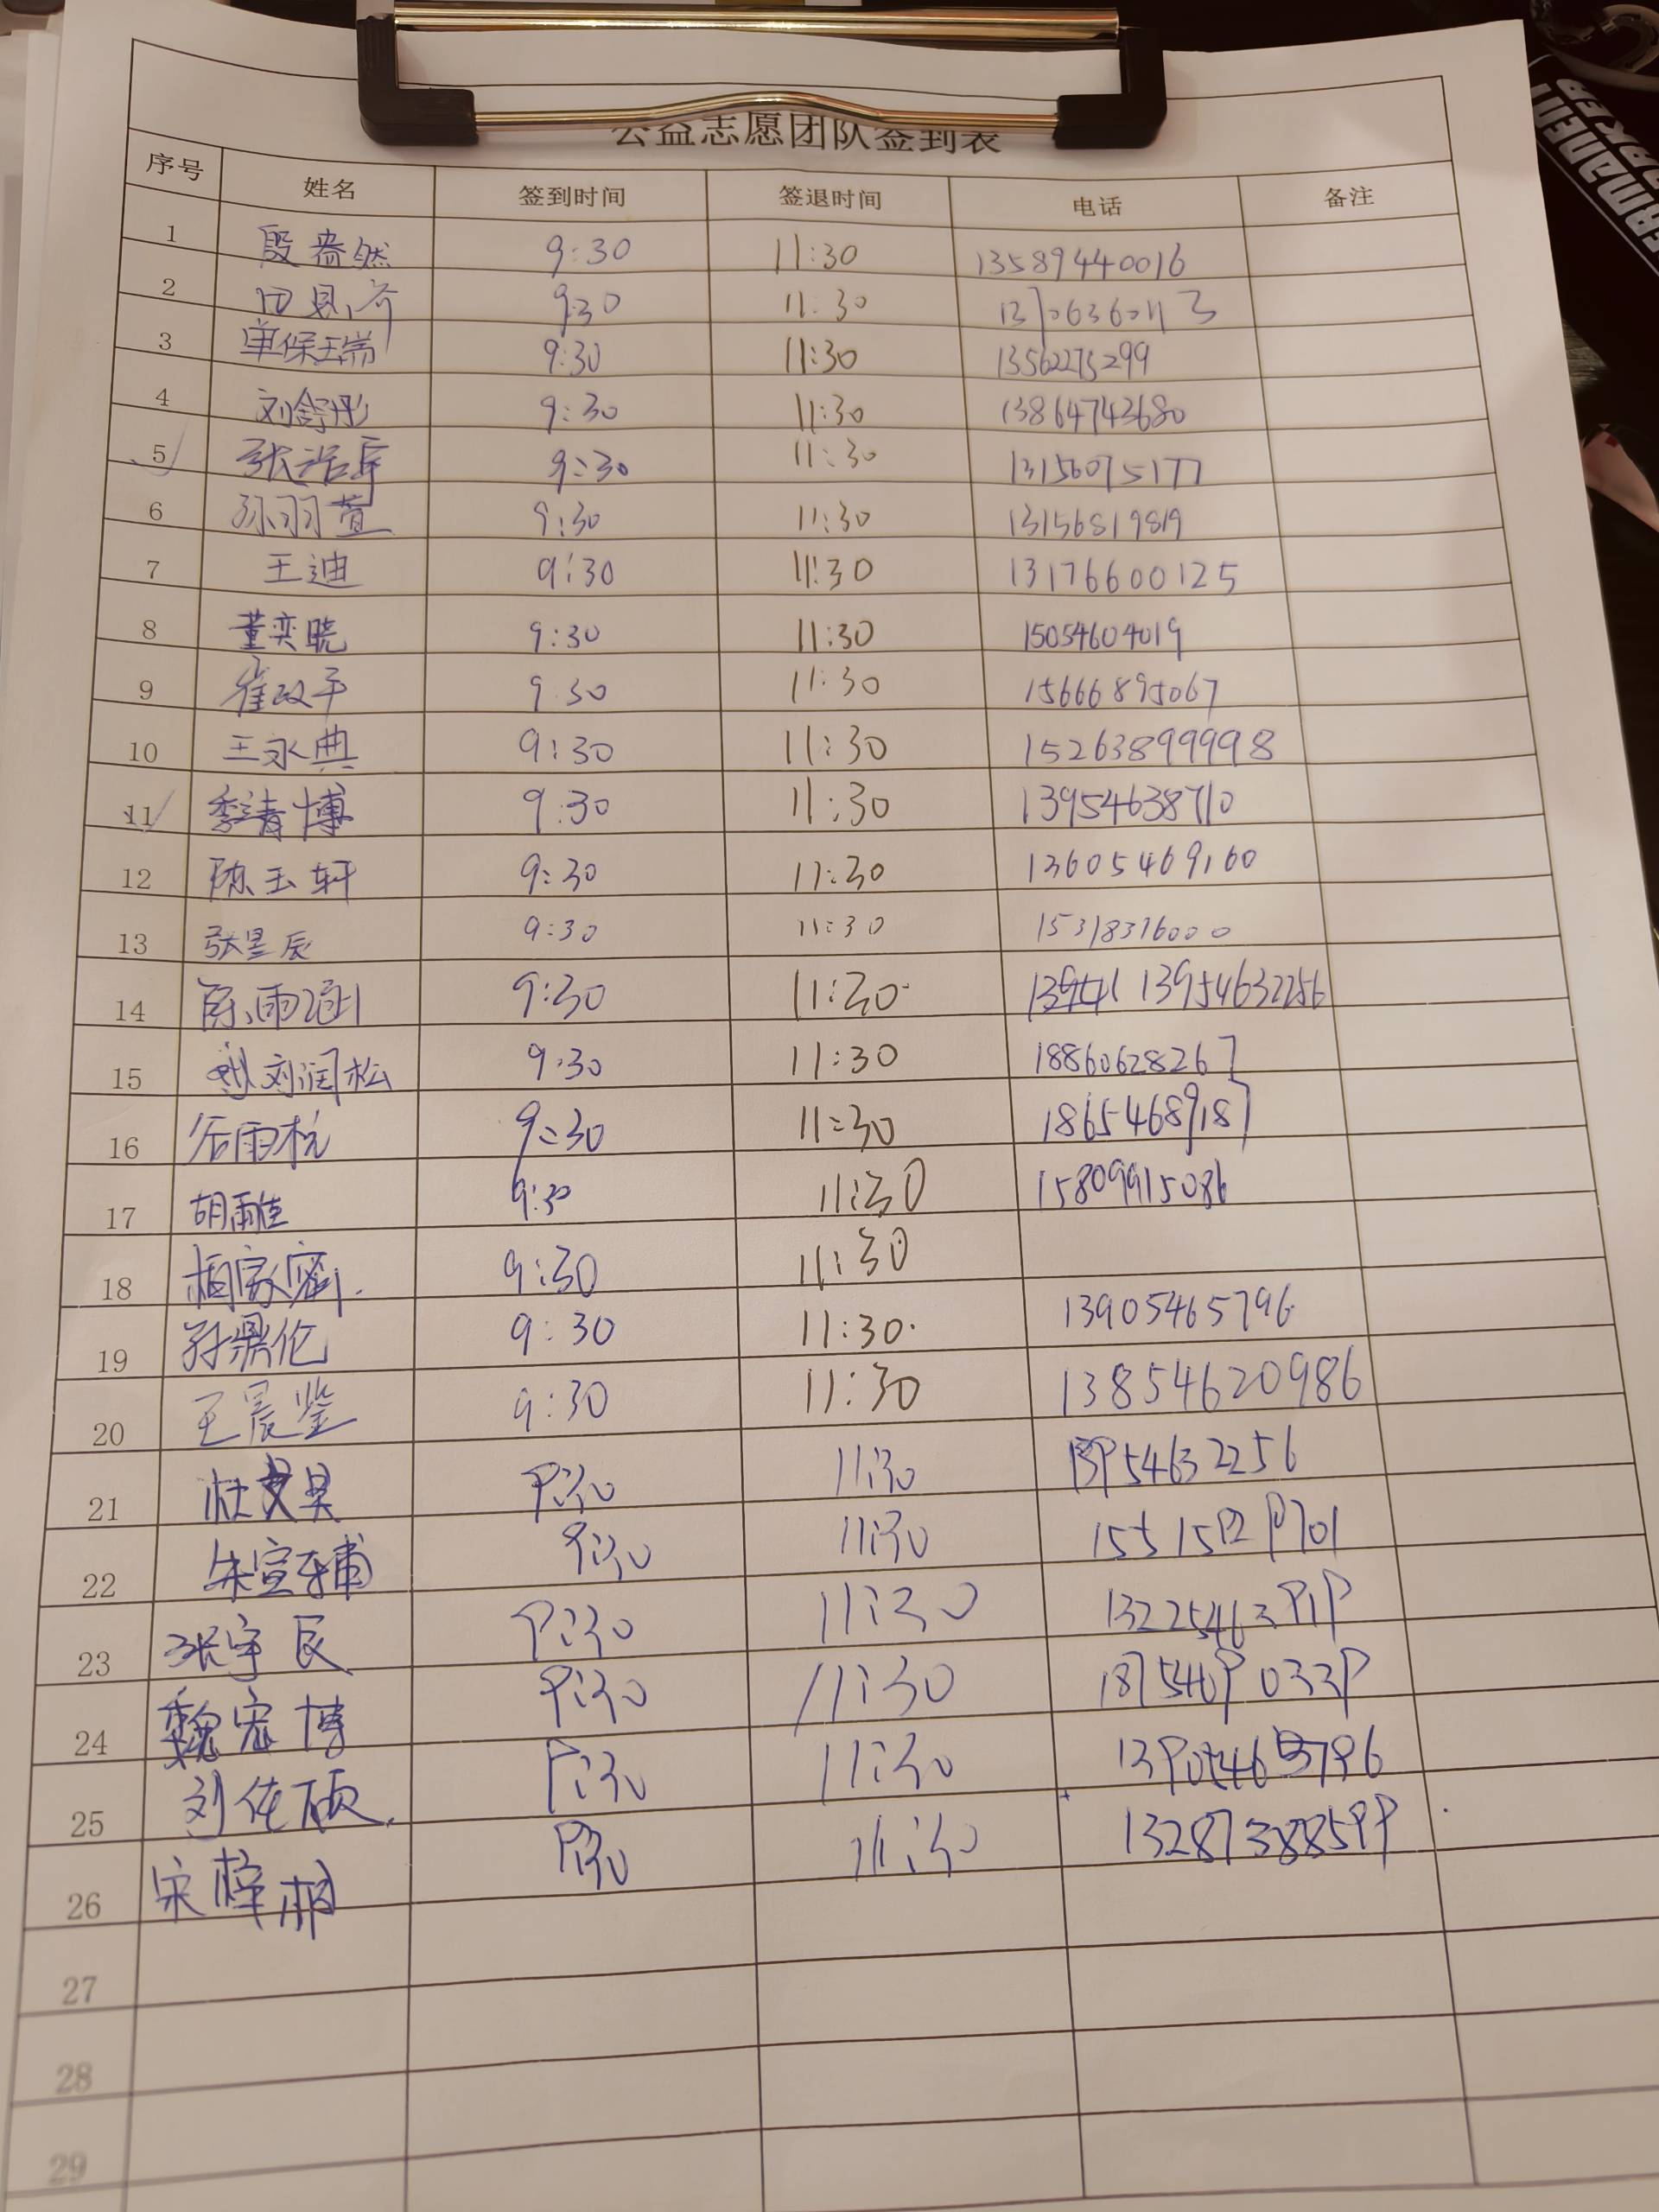 公益志愿团队签到表
序号 姓名 签到时间 签退时间 电话 备注
1 殷 然 9:30 11:30 13589440016
2 田 9:30 11:30 13706360113
3 单保瑞 9:30 11:30 13562275299
4 刘舒彤 9:30 11:30 13864743680
5 张浩 9:30 11:30 13156075177
6 孙羽萱 9:30 11:30 13156819819
7 王迪 9:30 11:30 13176600125
8 董奕晓 9:30 11:30 15054604019
9 崔政平 9:30 11:30 15666895067
10 王永典 9:30 11:30 15263899998
11 季清博 9:30 11:30 13954638710
12 陈玉轩 9:30 11:30 13605469160
13 张昱辰 9:30 11:30 15318316000
14 陈雨涵 9:30 11:30 13954632256
15 刘润松 9:30 11:30 18860628267
16 谷雨杭 9:30 11:30 18654689187
17 胡雅 9:30 11:30 15809915086
18 相家 9:30 11:30
19 孙鼎伦 9:30 11:30 13905465796
20 王晨鉴 9:30 11:30 13854620986
21 杜昊 9:30 11:30 13954632256
22 朱宣辅 9:30 11:30
23 张宇辰 9:30 11:30 13225463919
24 魏宏博 9:30 11:30 18754690339
25 刘佐硕 9:30 11:30 13905465796
26 宋梓桐 9:30 11:30 13287388599
27
28
29
PERMANENT
MARKER